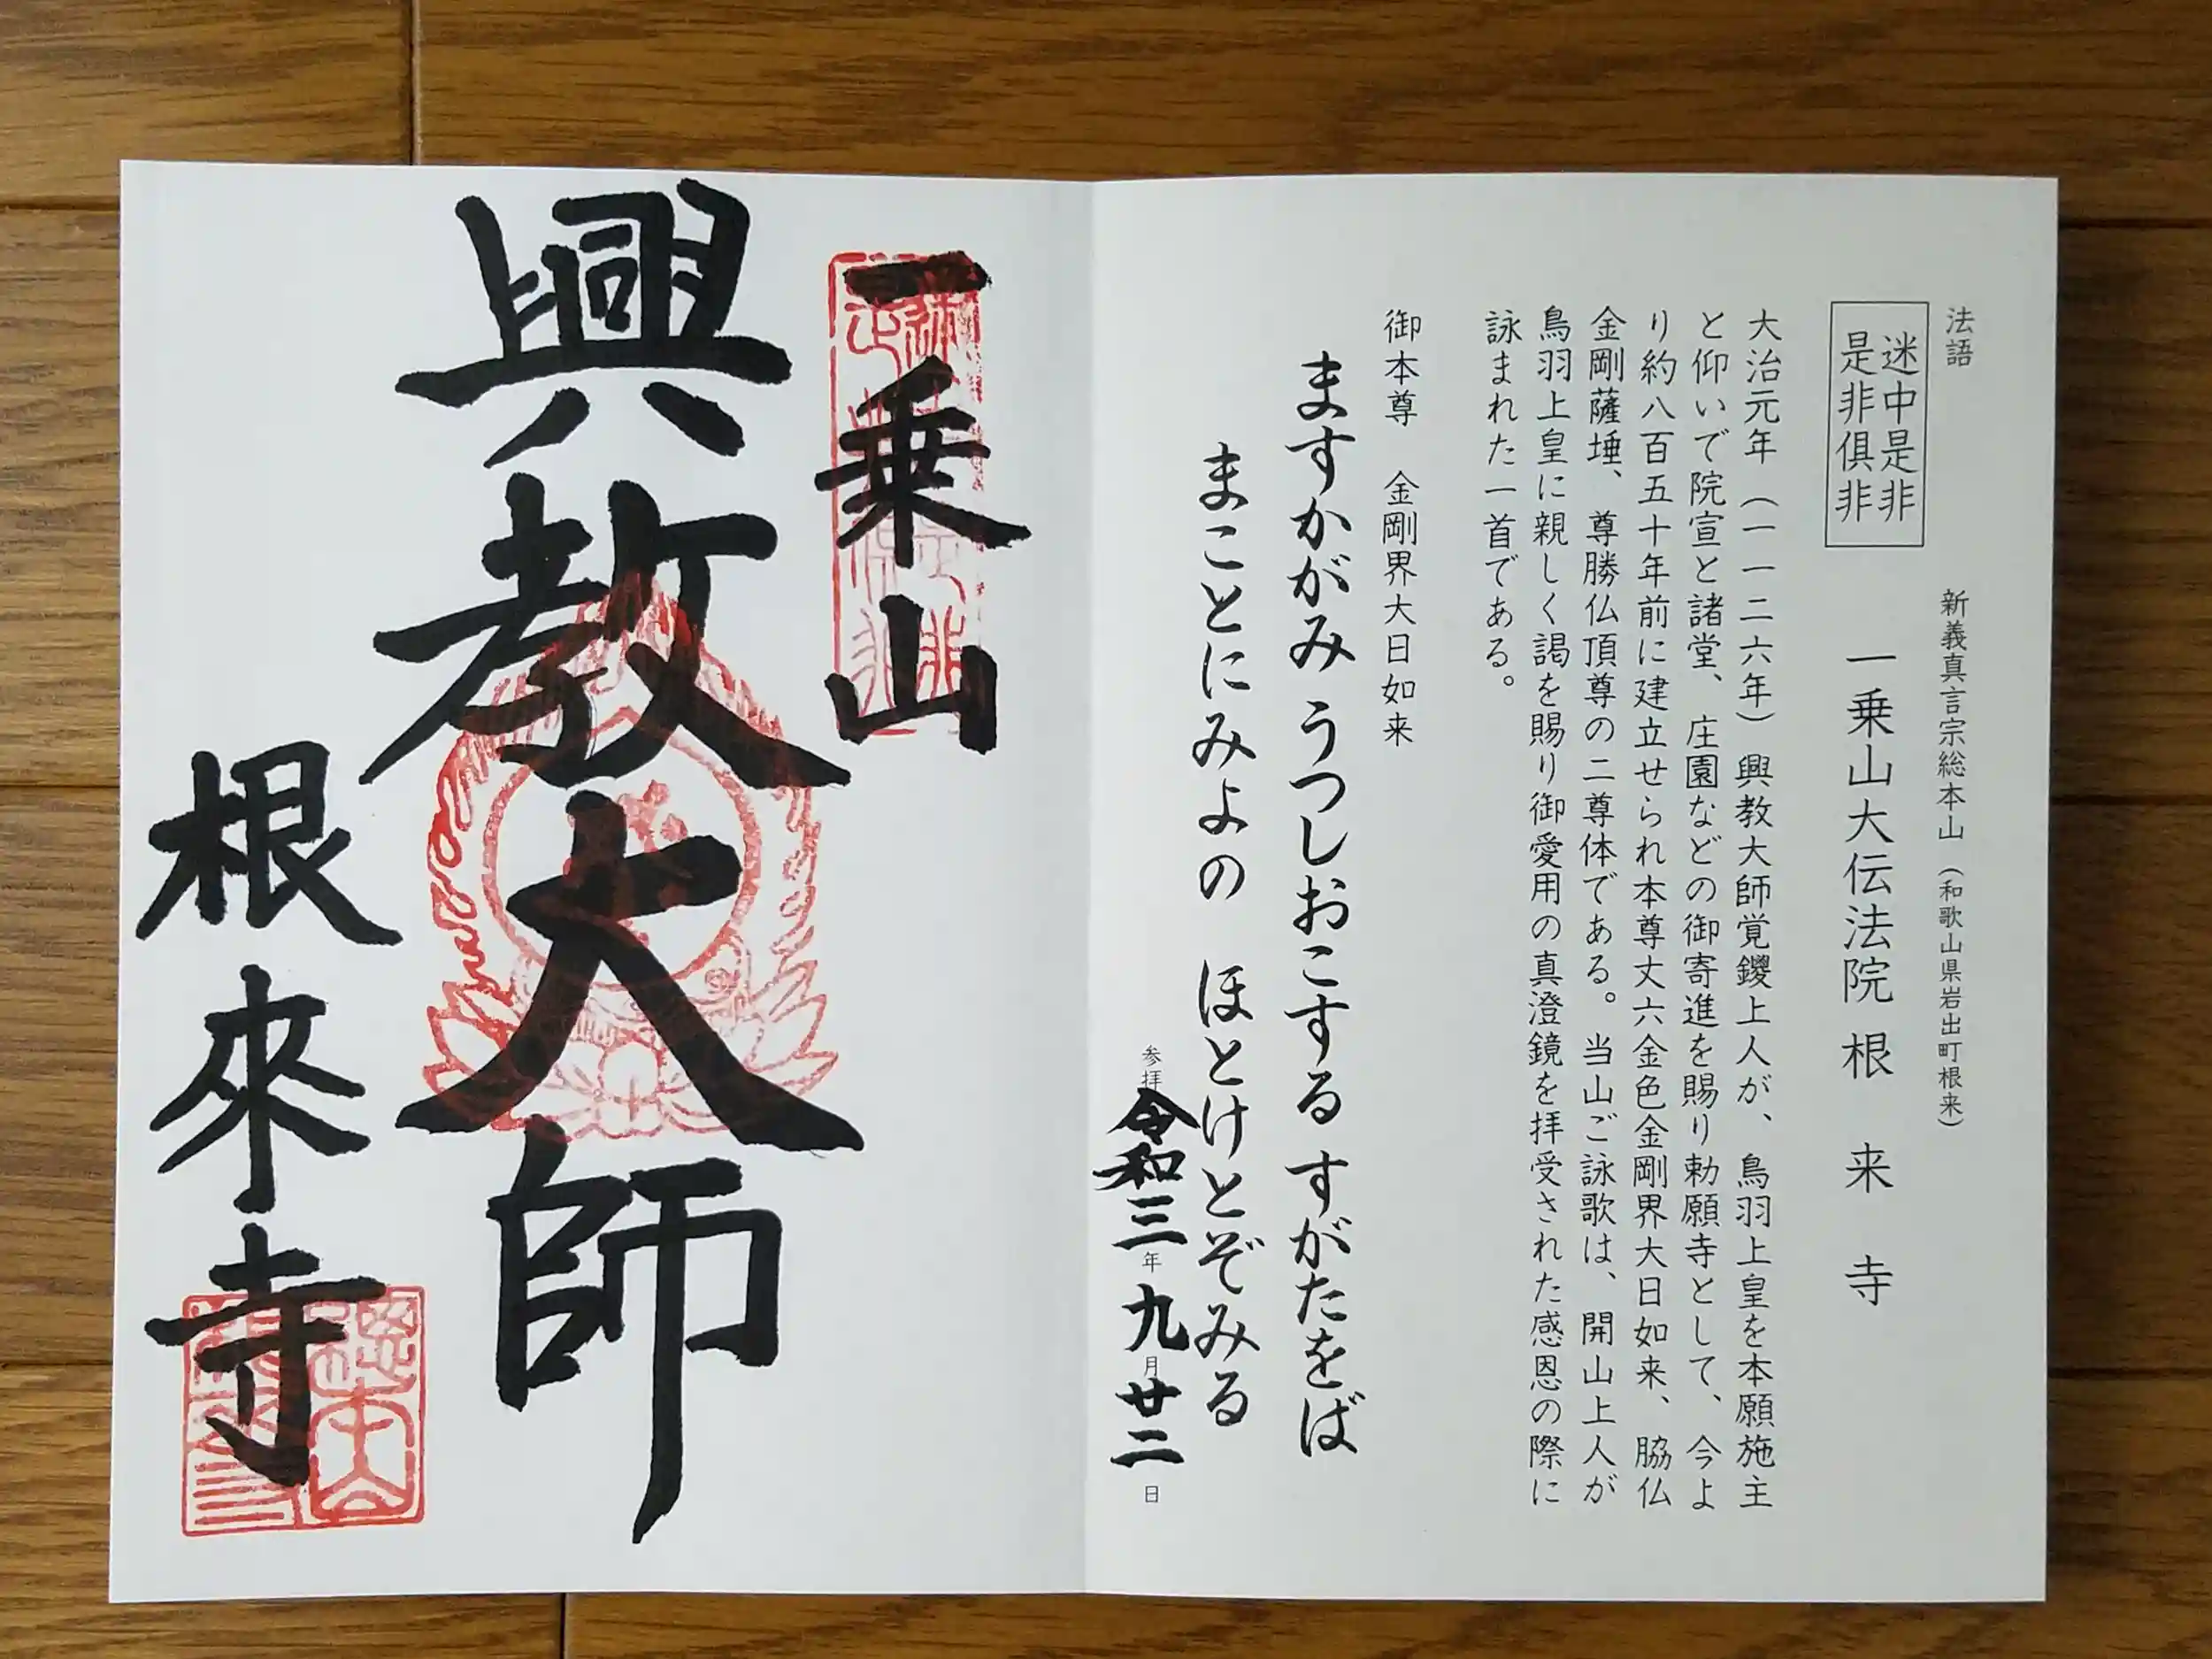 法語
迷中是非
是非俱非
新義真言宗総本山（和歌山県岩出町根来）
一乗山大伝法院根来寺
大治元年（一一二六年）興教大師覚鑁上人が、鳥羽上皇を本願施主
と仰いで院宣と諸堂、庄園などの御寄進を賜り勅願寺として、今よ
り約八百五十年前に建立せられ本尊丈六金色金剛界大日如来、脇仏
金剛薩埵、尊勝仏頂尊の二尊体である。当山ご詠歌は、開山上人が
鳥羽上皇に親しく謁を賜り御愛用の真澄鏡を拝受された感恩の際に
詠まれた一首である。
御本尊　金剛界大日如来
ますかがみ うつしおこする すがたをば
まことにみよの ほとけとぞみる
参拝 令和三年九月廿二日
一乗山
興教大師
根來寺